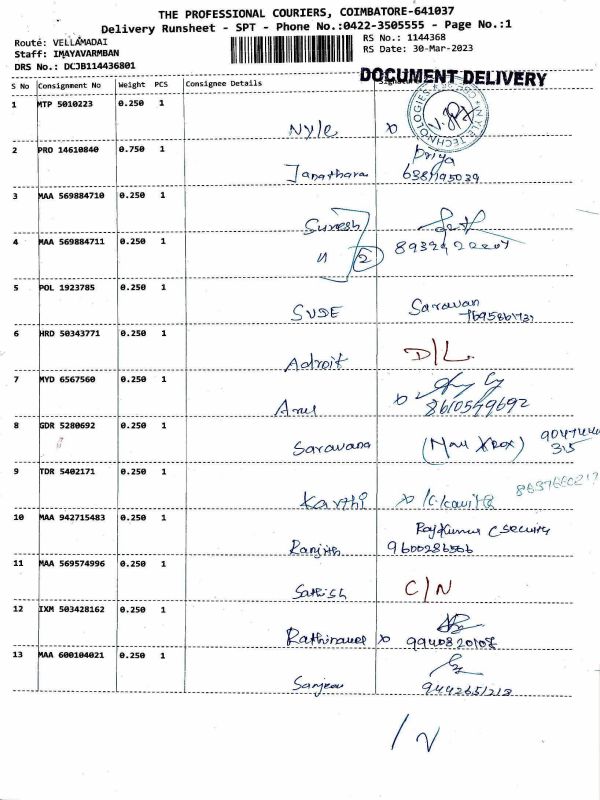 THE PROFESSIONAL COURIERS, COIMBATORE-641037
Delivery Runsheet - SPT - Phone No.:0422-3505555 - Page No.:1
Route: VELLAMADAI
RS No.: 1144368
Staff: IMAYAVARMBAN
RS Date: 30-Mar-2023
DRS No.: DCJB114436801
DOCUMENT DELIVERY
S No Consignment No Weight PCS Consignee Details
1 MTP 5010223 0.250 1
Nyle
2 PRO 14610840 0.750 1
Priya
3 MAA 569884710 0.250 1
Suresh
4 MAA 569884711 0.250 1
11 2
5 POL 1923785 0.250 1
Saravan
SVSE
6 HRD 50343771 0.250 1
Adroit D/L
7 MYD 6567560 0.250 1
Arul 8610549692
8 GDR 5280692 0.250 1
Saravana
9 TDR 5402171 0.250 1
Karthi
10 MAA 942715483 0.250 1
Rajkumar security
Ranjith 9600286566
11 MAA 569574996 0.250 1
Sathish C/N
12 IXM 503428162 0.250 1
Rathinavel
13 MAA 600104021 0.250 1
Sanjeev 9442651213